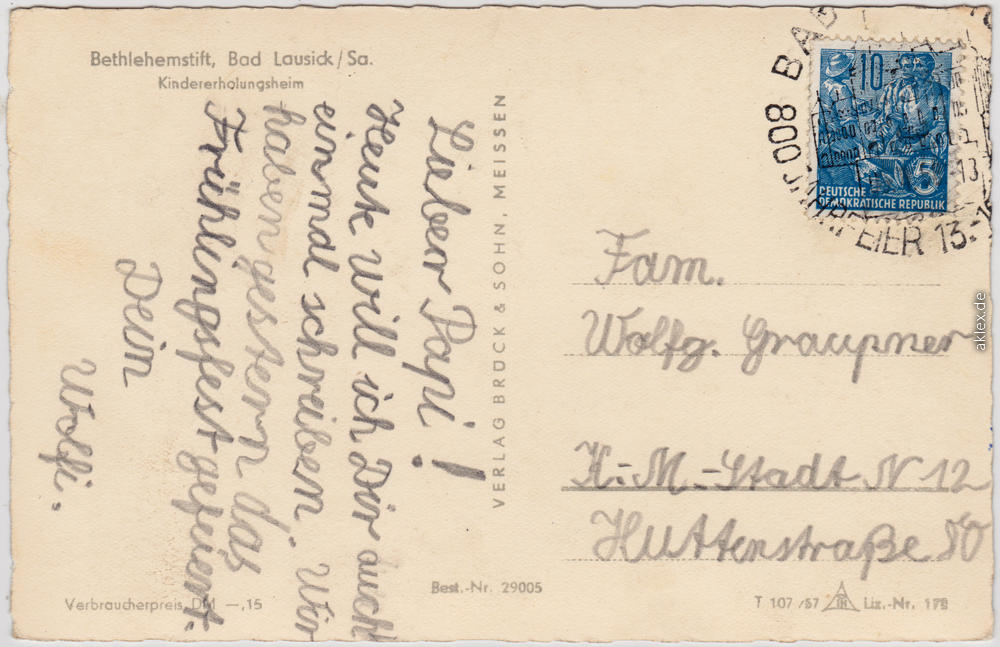 Bethlehemstift, Bad Lausick/Sa.
Kindererholungsheim
Lieber Papi!
Heute will ich Dir auch
einmal schreiben. Wir
haben gestern das
Frühlingsfest gefeiert.
Dein
Wolfi.
Verbraucherpreis DM —,15
VERLAG BRÜCK & SOHN, MEISSEN
Best.-Nr. 29005
800 JAHRFEIER 13.-1
10
5
DEUTSCHE
DEMOKRATISCHE REPUBLIK
Fam.
Wolfg. Graupner
K.-M.-Stadt N 12
Huttenstraße 80
T 107/57 Liz.-Nr. 178
aklex.de